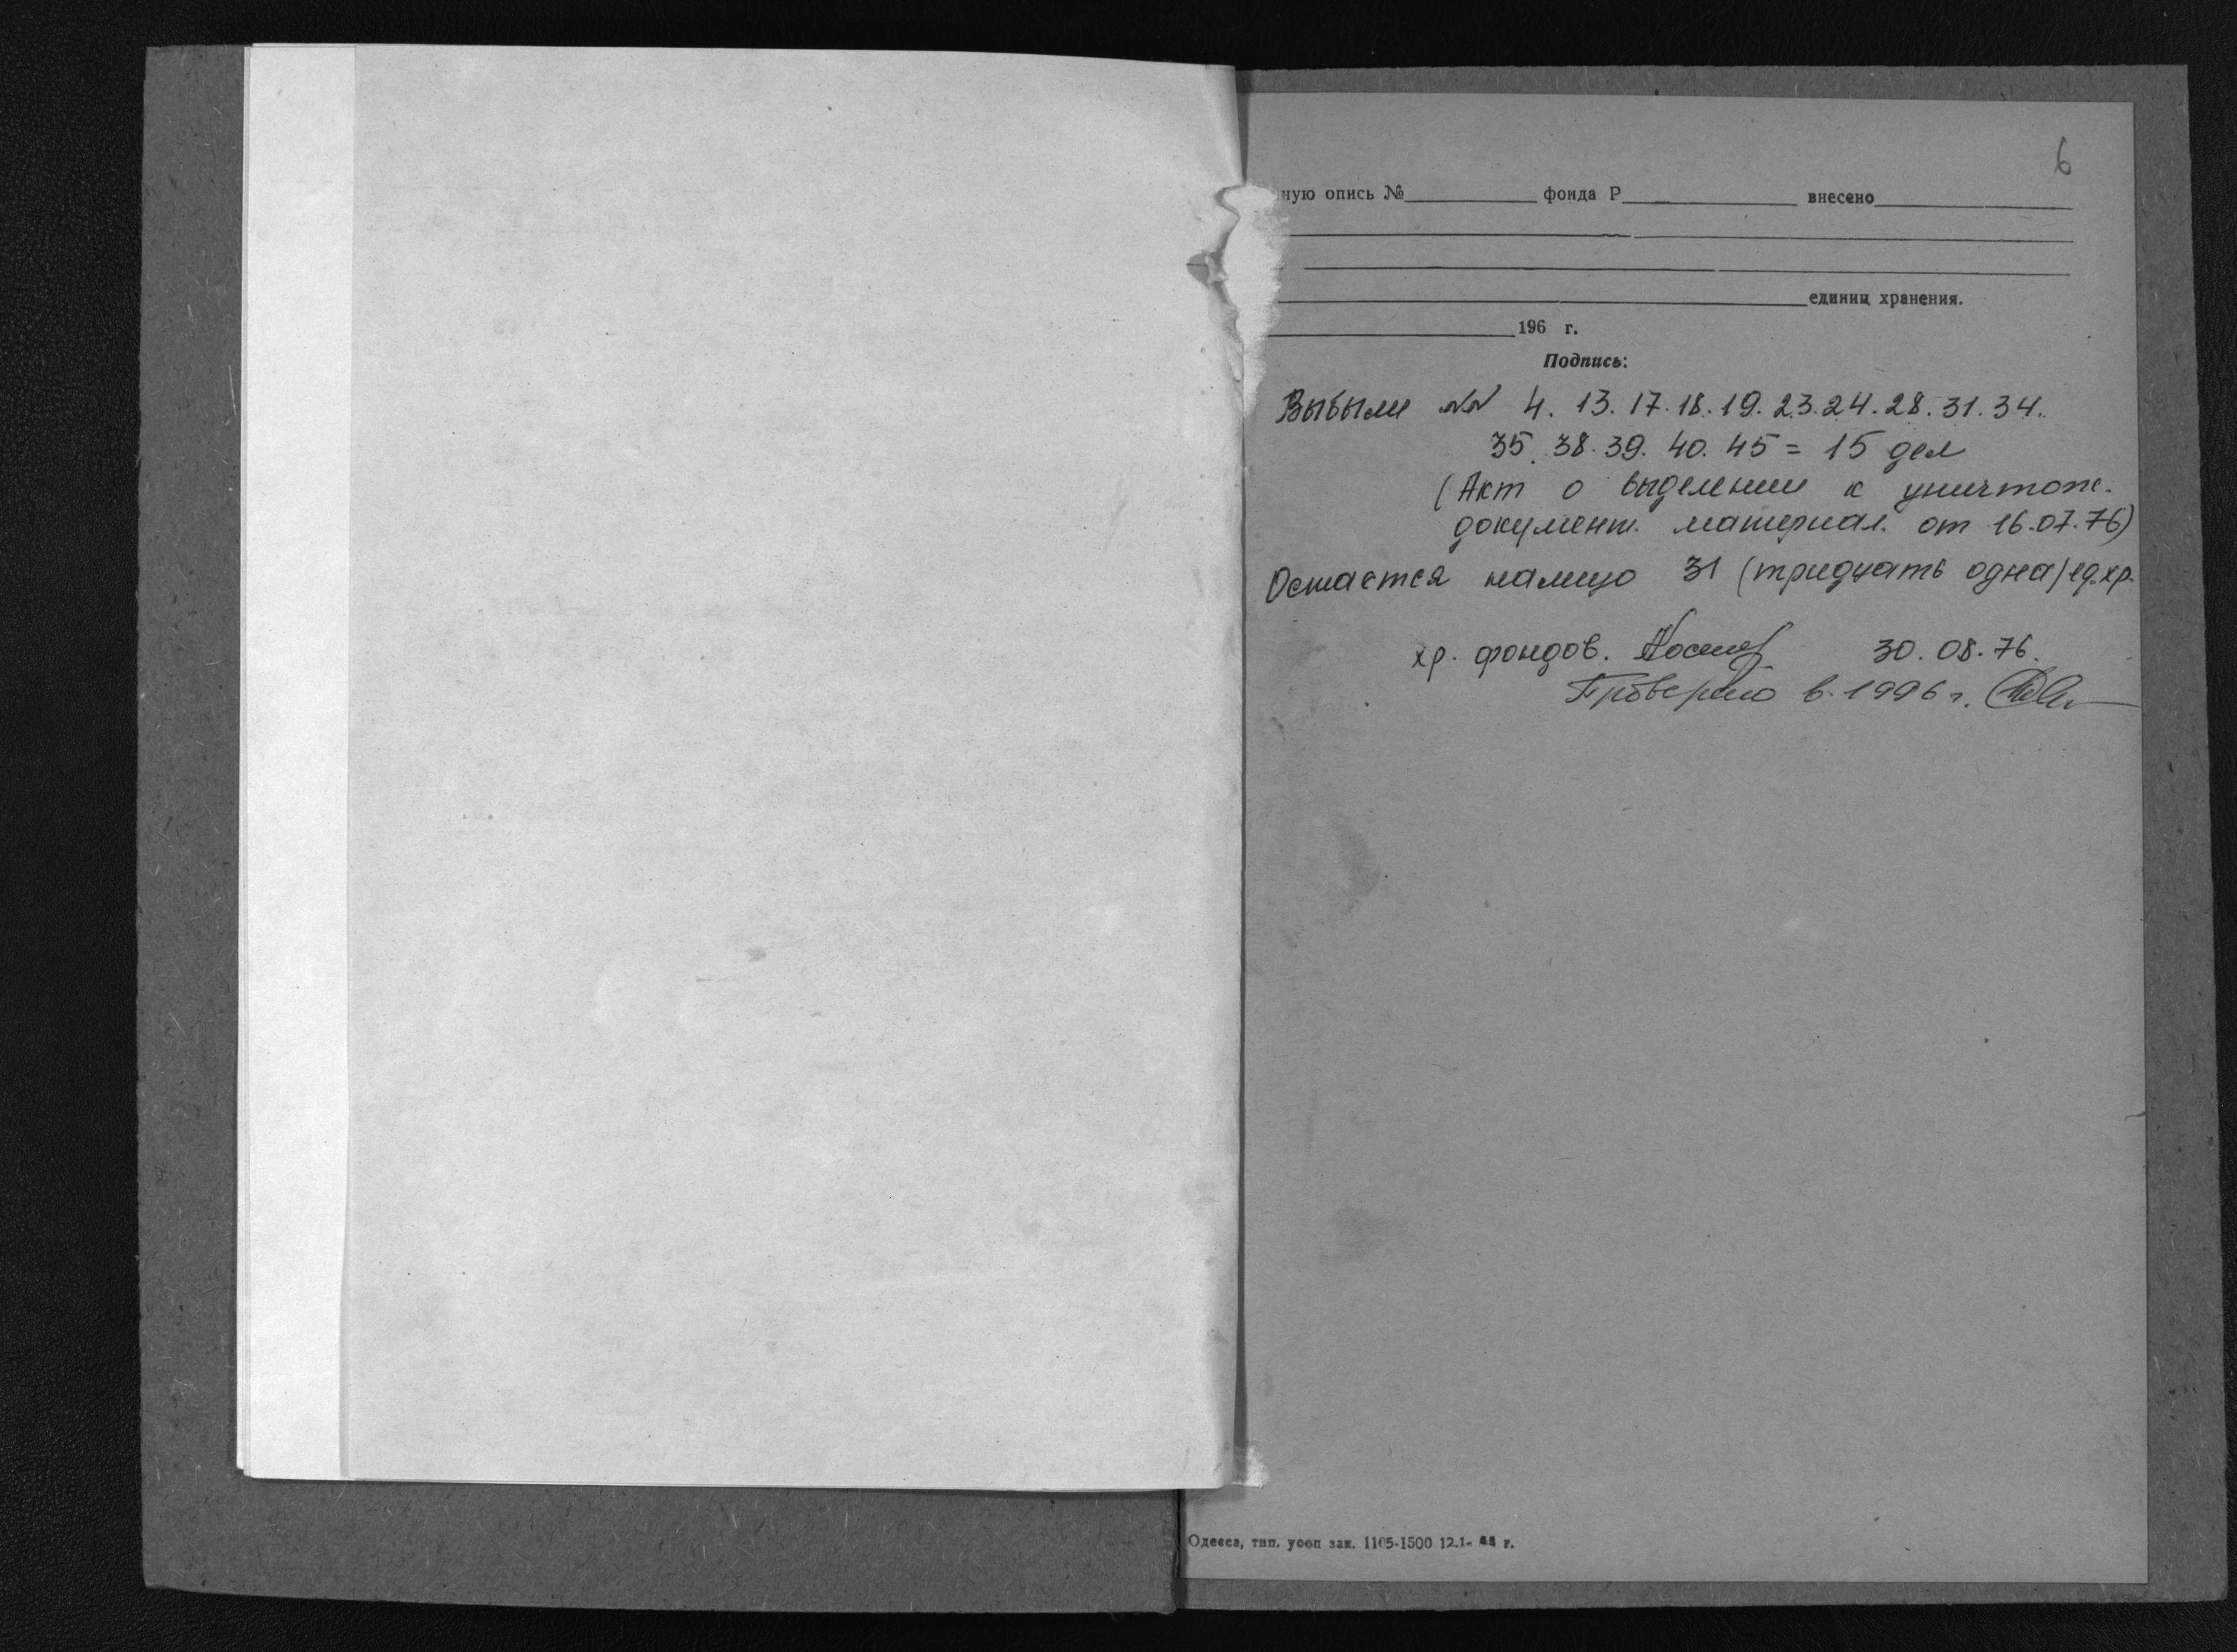 6
ную опись № фонда Р внесено
единиц хранения.
196 г.
Подпись:
Выбыли №№ 4. 13. 17. 18. 19. 23. 24. 28. 31. 34.
35. 38. 39. 40. 45 = 15 дел
(Акт о выделении к уничтож.
документ. материал. от 16.07.76)
Остается налицо 31 (тридцать одна) ед. хр.
хр. фондов. 30.08.76.
Проверено в 1996 г.
Одесса, тип. уооп зак. 1105-1500 12.1- г.